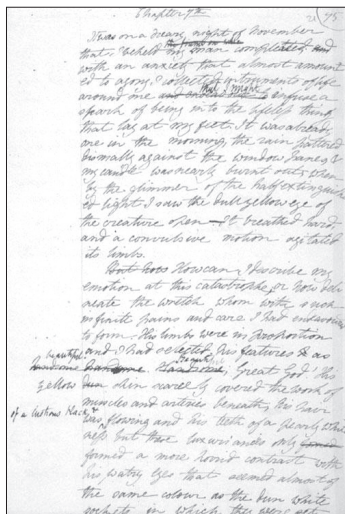 Chapter 7th
It was on a dreary night of November
that I beheld my man completed and
with an anxiety that almost amount
ed to agony I collected instruments of life
around me that I might infuse a
spark of being into the lifeless thing
that lay at my feet. It was already
one in the morning, the rain pattered
dismally against the window panes &
my candle was nearly burnt out, when
by the glimmer of the half extinguish
ed light I saw the dull yellow eye of
the creature open It breathed hard,
and a convulsive motion agitated
its limbs.
But how How can I describe my
emotion at this catastrophe, or how deli
neate the wretch whom with such
infinite pains and care I had endeavoured
to form His limbs were in proportion
and I had selected his features as
beautiful
handsome Great God! His
yellow dun skin scarcely covered the work of
muscles and arteries beneath, his hair
of a lustrous black &
was flowing and his teeth of a pearly white
ness but these luxuriances only
formed a more horrid contrast with
his watry eyes that seemed almost of
the same colour as the dun white
sockets in which they were set